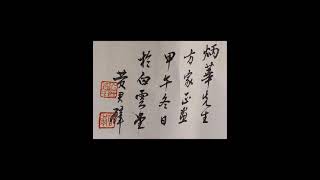 炳華先生
方家正畫
甲午冬日
於白雲堂
黃君璧